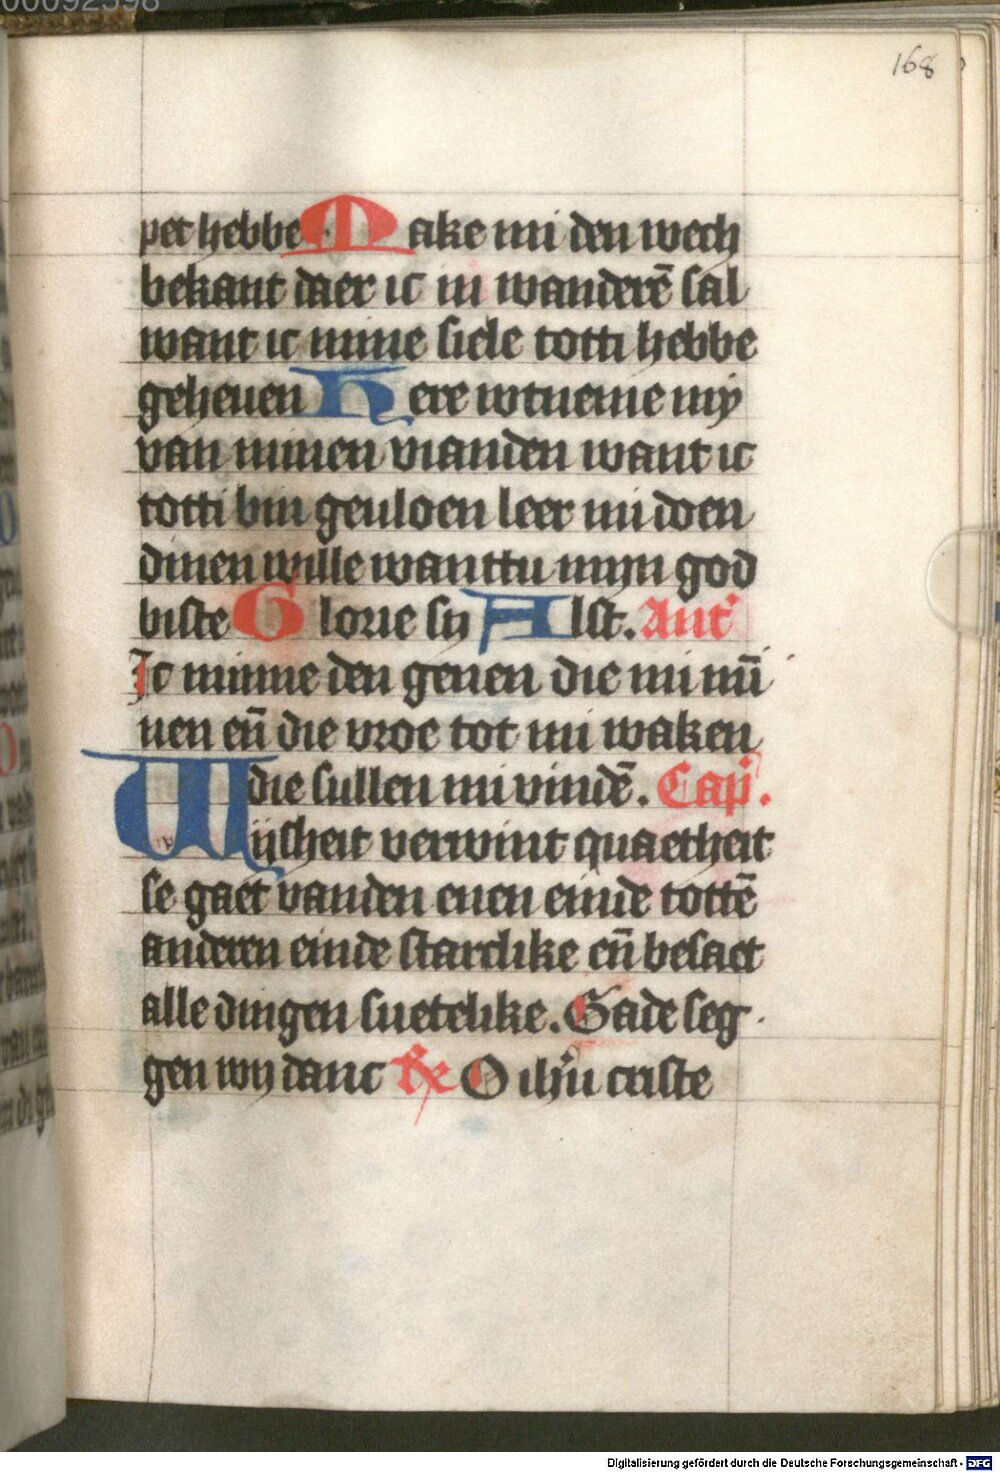 00092598
168
pet hebbe. Make mi den wech
bekant daer ic in wanderē sal
want ic mine siele totti hebbe
geheuen Here wtneme my
van minen vianden want ic
totti bin geuloen leer mi doen
dinen wille wanttu mijn god
biste Glorie sij Alst. Ant'
Ic minne den genen die mi mī
nen eñ die vroe tot mi waken
die sullen mi vindē. Cap'.
Wijsheit verwint quaetheit
se gaet vanden enen einde tottē
anderen einde starclike eñ besaet
alle dingen suetelike. Gade seg
gen wij danc ℟ O ihu criste
Digitalisierung gefördert durch die Deutsche Forschungsgemeinschaft - DFG